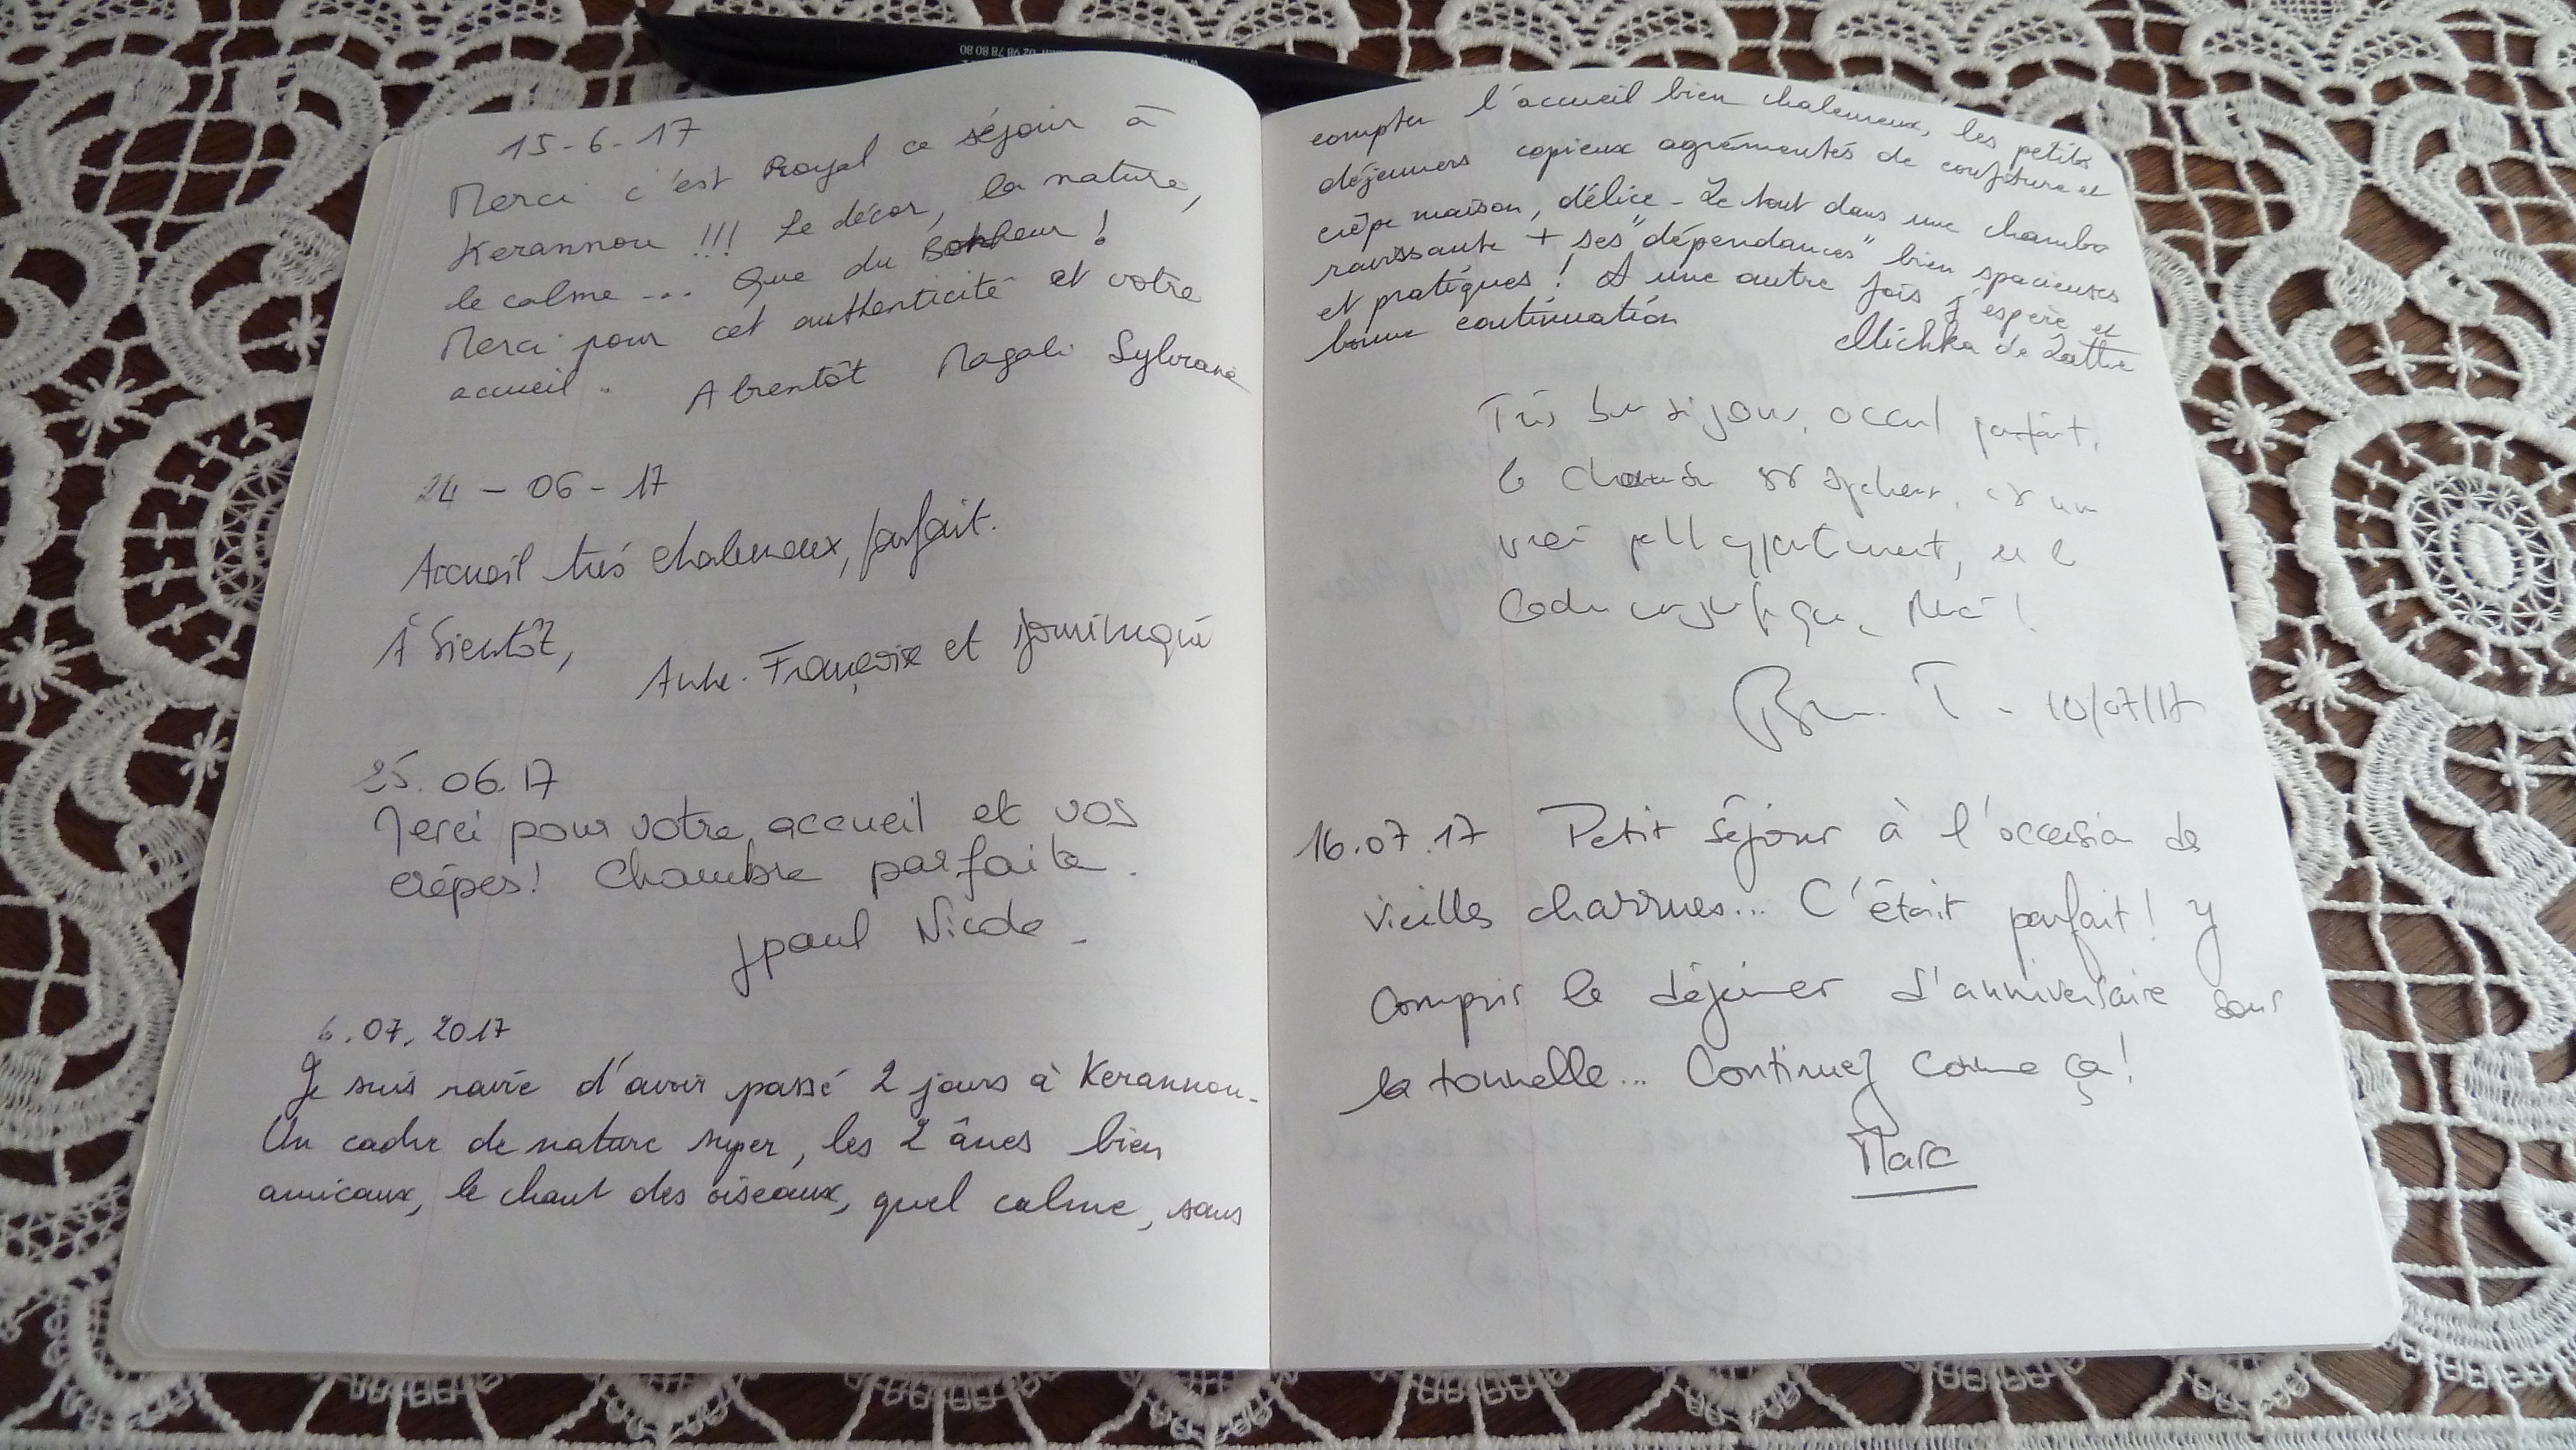 02 98 78 80 80
15-6-17
Merci c'est Royal ce séjour à
Kerannou !!! Le décor, la nature,
le calme ... Que du Bonheur !
Merci pour cet authenticité et votre
accueil. A bientôt Magali Sylviane
24-06-17
Accueil très chaleureux, parfait.
À bientôt,
Anne-Françoise et Dominique
25.06.17
Merci pour votre accueil et vos
crêpes! Chambre parfaite.
Jpaul Nicole
6.07.2017
Je suis ravie d'avoir passé 2 jours à Kerannou.
Un cadre de nature super, les 2 ânes bien
amicaux, le chant des oiseaux, quel calme, sans
compter l'accueil bien chaleureux, les petits
déjeuners copieux agrémentés de confiture et
crêpe maison, délice - Le tout dans une chambre
ravissante + ses "dépendances" bien spacieuses
et pratiques ! A une autre fois j'espère et
bonne continuation
Michka de Lattre
Très bon séjour, accueil parfait,
la chambre est, est un
vrai petit appartement, et le
cadre magnifique. Merci !
T - 10/07/17
16.07.17 Petit séjour à l'occasion des
vieilles charrues... C'était parfait! Y
compris le déjeuner d'anniversaire sous
la tonnelle... Continuez comme ça!
Marc